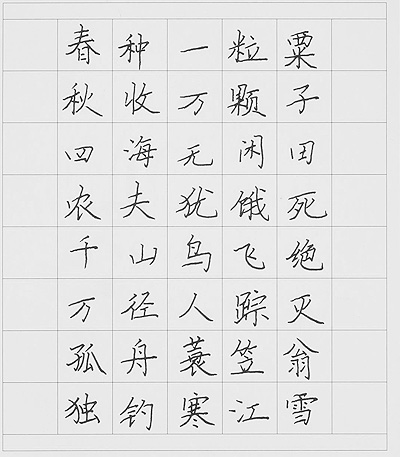 春种一粒粟
秋收万颗子
四海无闲田
农夫犹饿死
千山鸟飞绝
万径人踪灭
孤舟蓑笠翁
独钓寒江雪